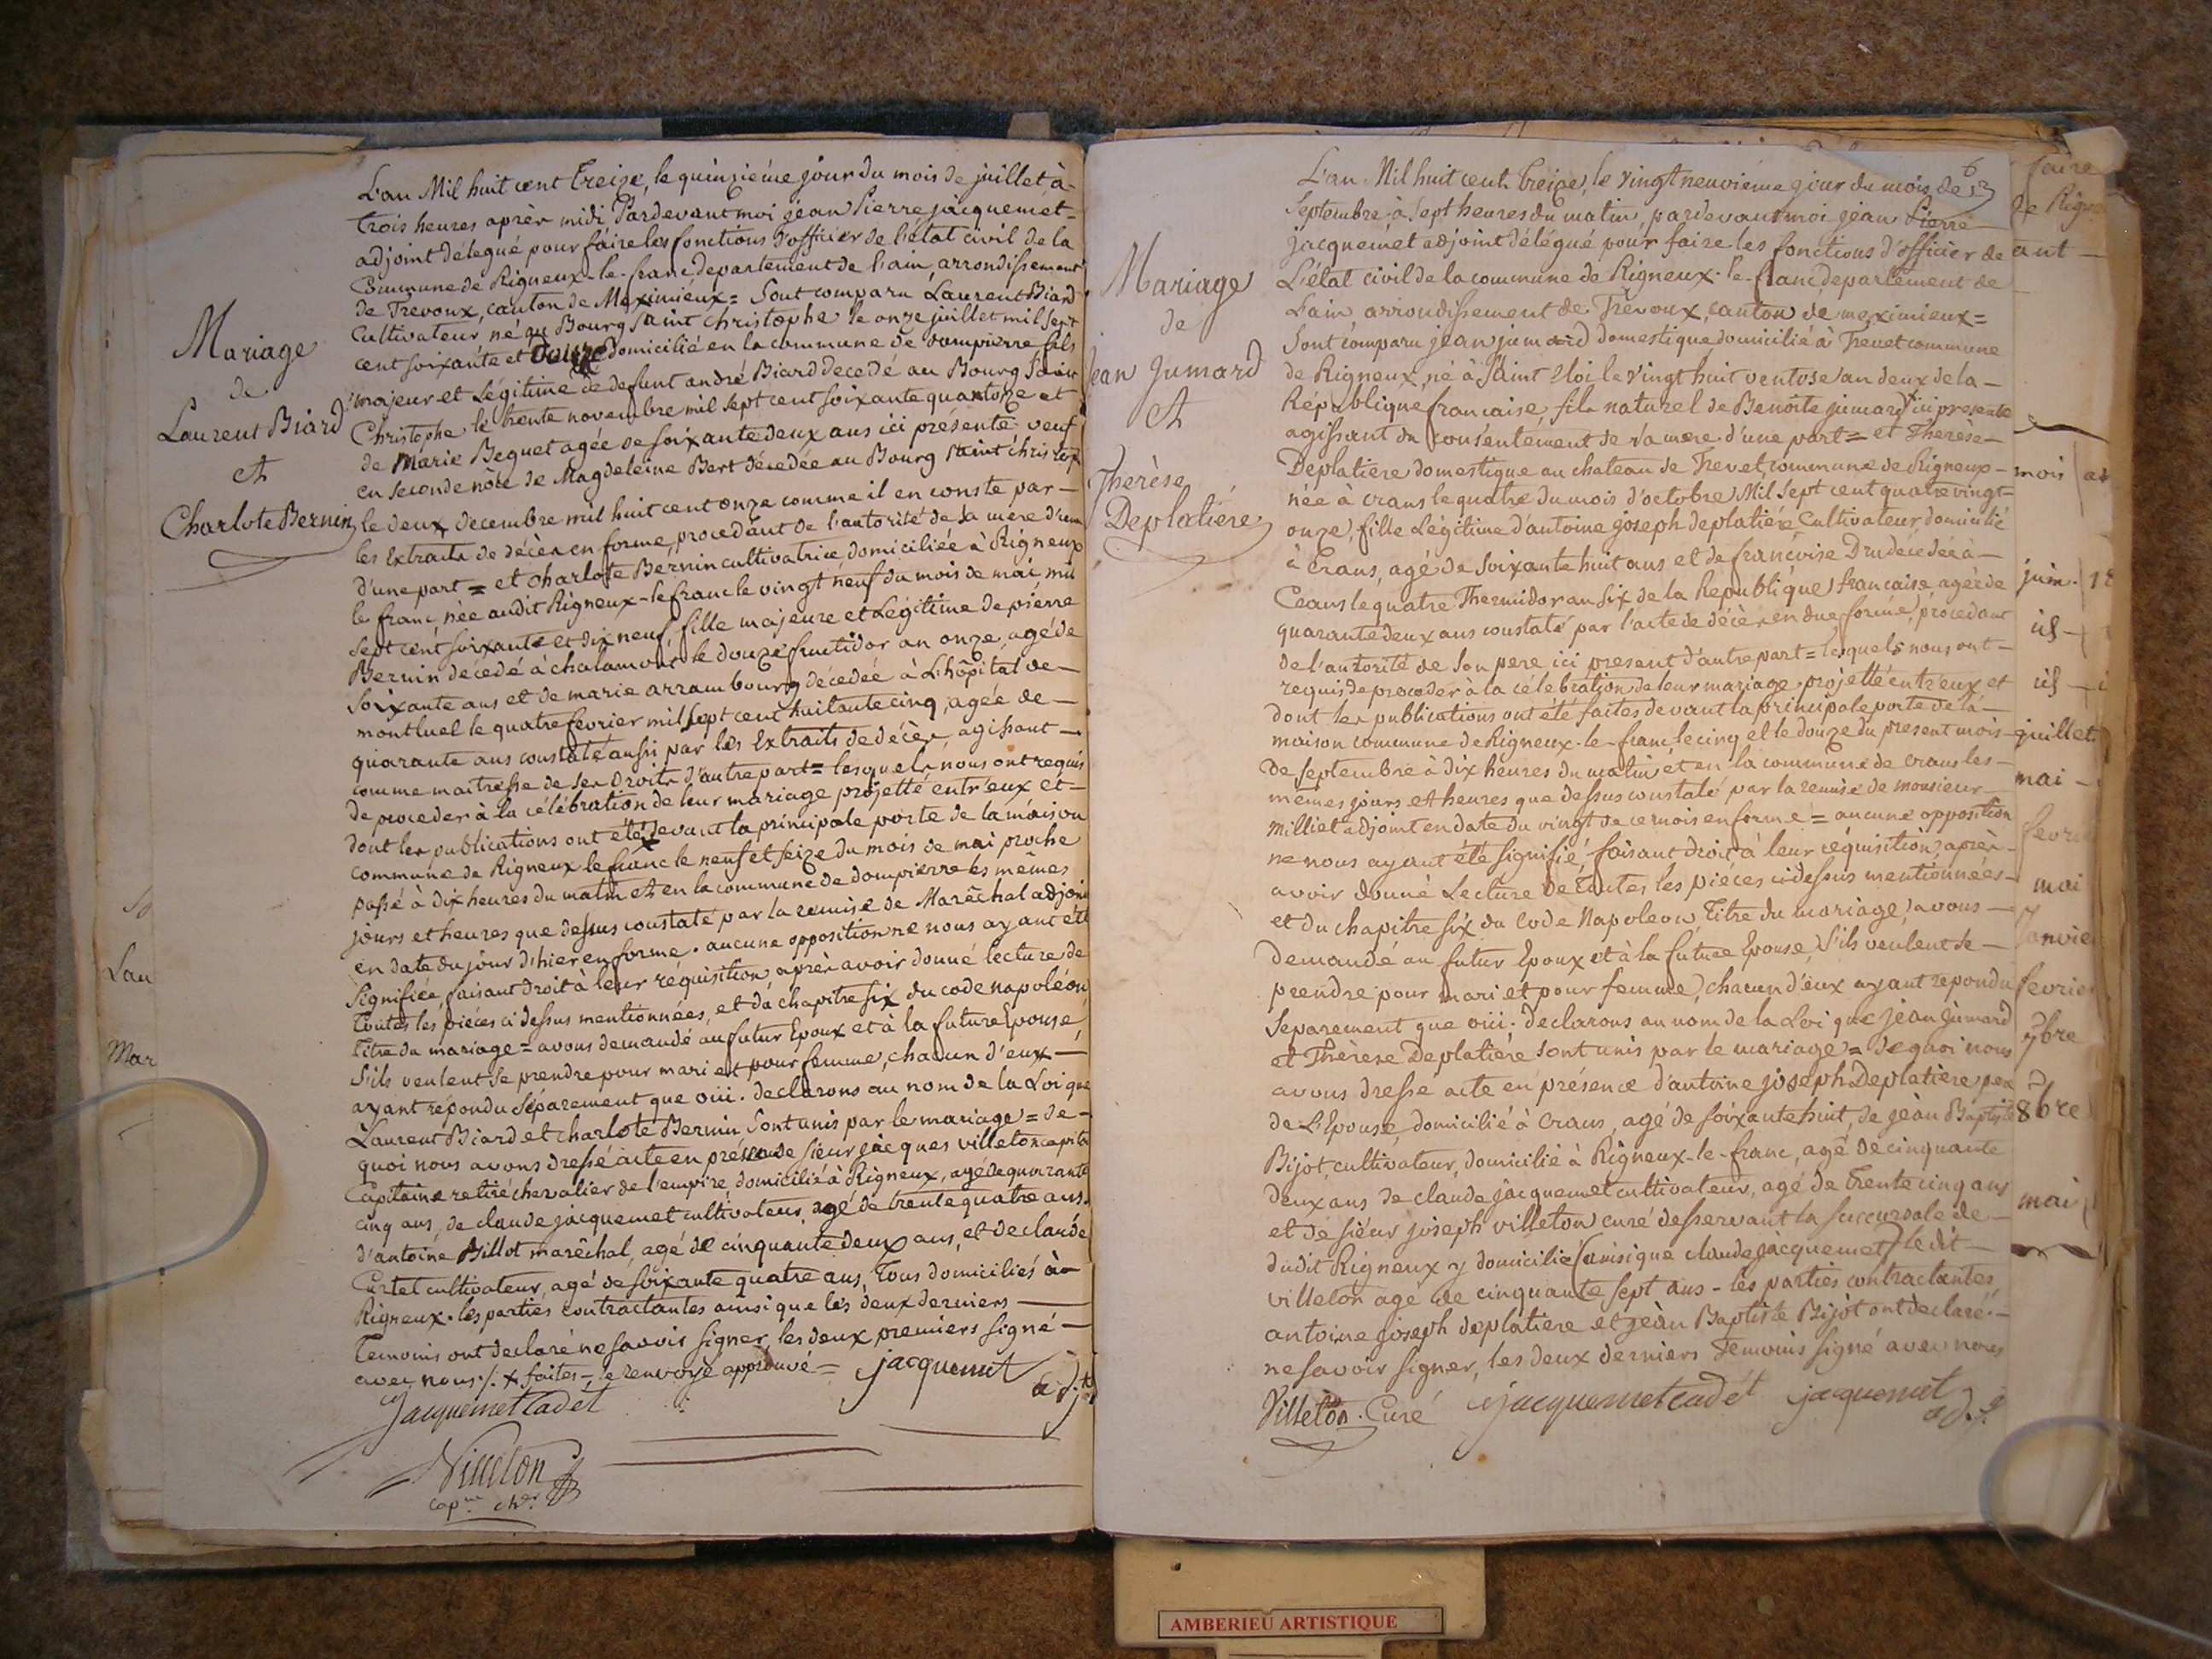 L'an Mil huit cent treize, le quinzième jour du mois de juillet, à
trois heures après midi Pardevant moi jean Pierre jacquemet
adjoint délegué pour faire les fonctions d'officier de l'etat civil de la
Commune de Rigneux-le-franc departement de l'ain, arrondissement
de Trevoux, canton de Meximieux = Sont comparu Laurent Biard
Cultivateur, né au Bourg saint christophe le onze juillet mil sept
cent soixante et domicilié en la commune de Dompierre fils
majeur et Légitime de defunt andré Biard decedé au Bourg Saint
Christophe le trente novembre mil sept cent soixante quatorze et
de Marie Bequet agée de soixante deux ans ici présente veuf
en seconde nôce de Magdeleine Bert décedée au Bourg saint chris
le deux decembre mil huit cent onze comme il en conste par
les Extraits de décès en forme, procedant de l'autorité de sa mere d'une
d'une part = et charlote Bernin cultivatrice domiciliée à Rigneux
le franc, née audit Rigneux-le franc le vingt neuf du mois de mai mil
sept cent soixante et dix neuf, fille majeure et Légitime de pierre
Bernin décedé à chalamont le douze fructidor an onze, agé de
soixante ans et de marie arrambourg décedée à L'hôpital de
montluel le quatre fevrier mil sept cent huitante cinq, agée de
quarante ans constaté aussi par les Extraits de décès, agissant
comme maitresse de ses Droits d'autre part = lesquels nous ont requis
de proceder à la célébration de leur mariage projetté entr'eux et
dont les publications ont été x devant la principale porte de la maison
commune de Rigneux le franc le neuf et seize du mois de mai proche
passé à dix heures du matin et en la commune de dompierre les mêmes
jours et heures que dessus constaté par la remise de Maréchal adjoint
en date du jour d'hier en forme. aucune opposition ne nous ayant été
Signifiée, faisant droit à leur réquisition, après avoir donné lecture de
toutes les pièces ci dessus mentionnées, et du chapitre six du code napoléon
titre du mariage = avons demandé au futur Epoux et à la future Epouse,
s'ils veulent se prendre pour mari et pour femme, chacun d'eux
ayant répondu séparement que oüi. declarons au nom de la Loi que
Laurent Biard et charlote Bernin sont unis par le mariage = de
quoi nous avons dressé acte en présence de siéur jacques villeton capit
Capitaine retiré chevalier de l'empire domicilié à Rigneux, agé de quarante
cinq ans, de claude jacquemet cultivateur, agé de trente quatre ans.
d'antoine Billot maréchal, agé de cinquante deux ans, et de claude
Curtet cultivateur, agé de soixante quatre ans, tous domiciliés à
Rigneux. les parties contractantes ainsi que les deux derniers
temoins ont declaré ne savoir signer, les deux premiers signé
avec nous ./. x faites = le renvoye approuvé = jacquemet adjt
Jacquemet Cadét
Villeton
capne chr
Mariage
de
Laurent Biard
et
Charlote Bernin
Lau
Mar
6
L'an Mil huit cent treize, le vingt neuvième jour du mois de
Septembre à sept heures du matin, pardevant moi jean Pierre
jacquemet adjoint délégué pour faire les fonctions d'officier de
L'état civil de la commune de Rigneux-le-franc departement de
L'ain arrondissement de Trevoux, canton de meximieux =
Sont comparu jean jumard domestique domicilié à Trevet commune
de Rigneux, né à saint Eloi le vingt huit ventose an deux de la
République francaise fils naturel de Benoite jumard ici presente
agissant du consentement de sa mere d'une part = et Therèse
Deplatiere domestique au chateau de Trevet commune de Rigneux
née à crans le quatre du mois d'octobre Mil sept cent quatre vingt
onze, fille Légitime d'antoine joseph deplatière Cultivateur domicilié
à Crans, agé de soixante huit ans et de françoise Dru décedée à
Crans le quatre Thermidor an six de la Republique francaise agée de
quarante deux ans constaté par l'acte de décès en due forme, procedant
de l'autorité de son pere ici present d'autre part = lesquels nous ont
requis de proceder à la célebration de leur mariage projetté entr'eux et
dont les publications ont été faites devant la principale porte de la
maison commune de Rigneux-le-franc le cinq et le douze du present mois
de septembre à dix heures du matin et en la commune de crans les
mêmes jours et heures que dessus constaté par la remise de monsieur
milliet adjoint en date du vingt de ce mois en forme = aucune opposition
ne nous ayant été signifié, faisant droit à leur réquisition, après
avoir donné Lecture de toutes les pièces ci dessus mentionnées
et du chapitre six du code Napoleon titre du mariage, avons
demandé au futur Epoux et à la future Epouse, s'ils veulent se
prendre pour mari et pour femme, chacun d'eux ayant repondu
separement que oüi. declarons au nom de la Loi que jean jumard
et Thèrese Deplatière sont unis par le mariage = de quoi nous
avons dresse acte en présence d'antoine joseph Deplatière pere
de L'Epouse, domicilié à crans, agé de soixante huit, de jean Baptiste
Bijot, cultivateur, domicilié à Rigneux-le-franc, agé de cinquante
deux ans de claude jacquemet cultivateur, agé de trente cinq ans
et de siéur joseph villeton curé desservant la succursale de
dudit Rigneux y domicilié (ainsi que claude jacquemet) ledit
villeton agé de cinquante sept ans - les parties contractantes
antoine joseph deplatiere et jean Baptiste Bijôt ont declaré
ne savoir signer, les deux derniers temoins signé avec nous
Villeton. Curé jacquemet cadét jacquemet adjt
Mariage
de
Jean Jumard
et
Thérèse
Deplatière
faire
de Rign
ant
mois
juin. 18
juillet
mai
fevri
mai
janvie
fevrier
7bre
8bre
mai
AMBERIEU ARTISTIQUE